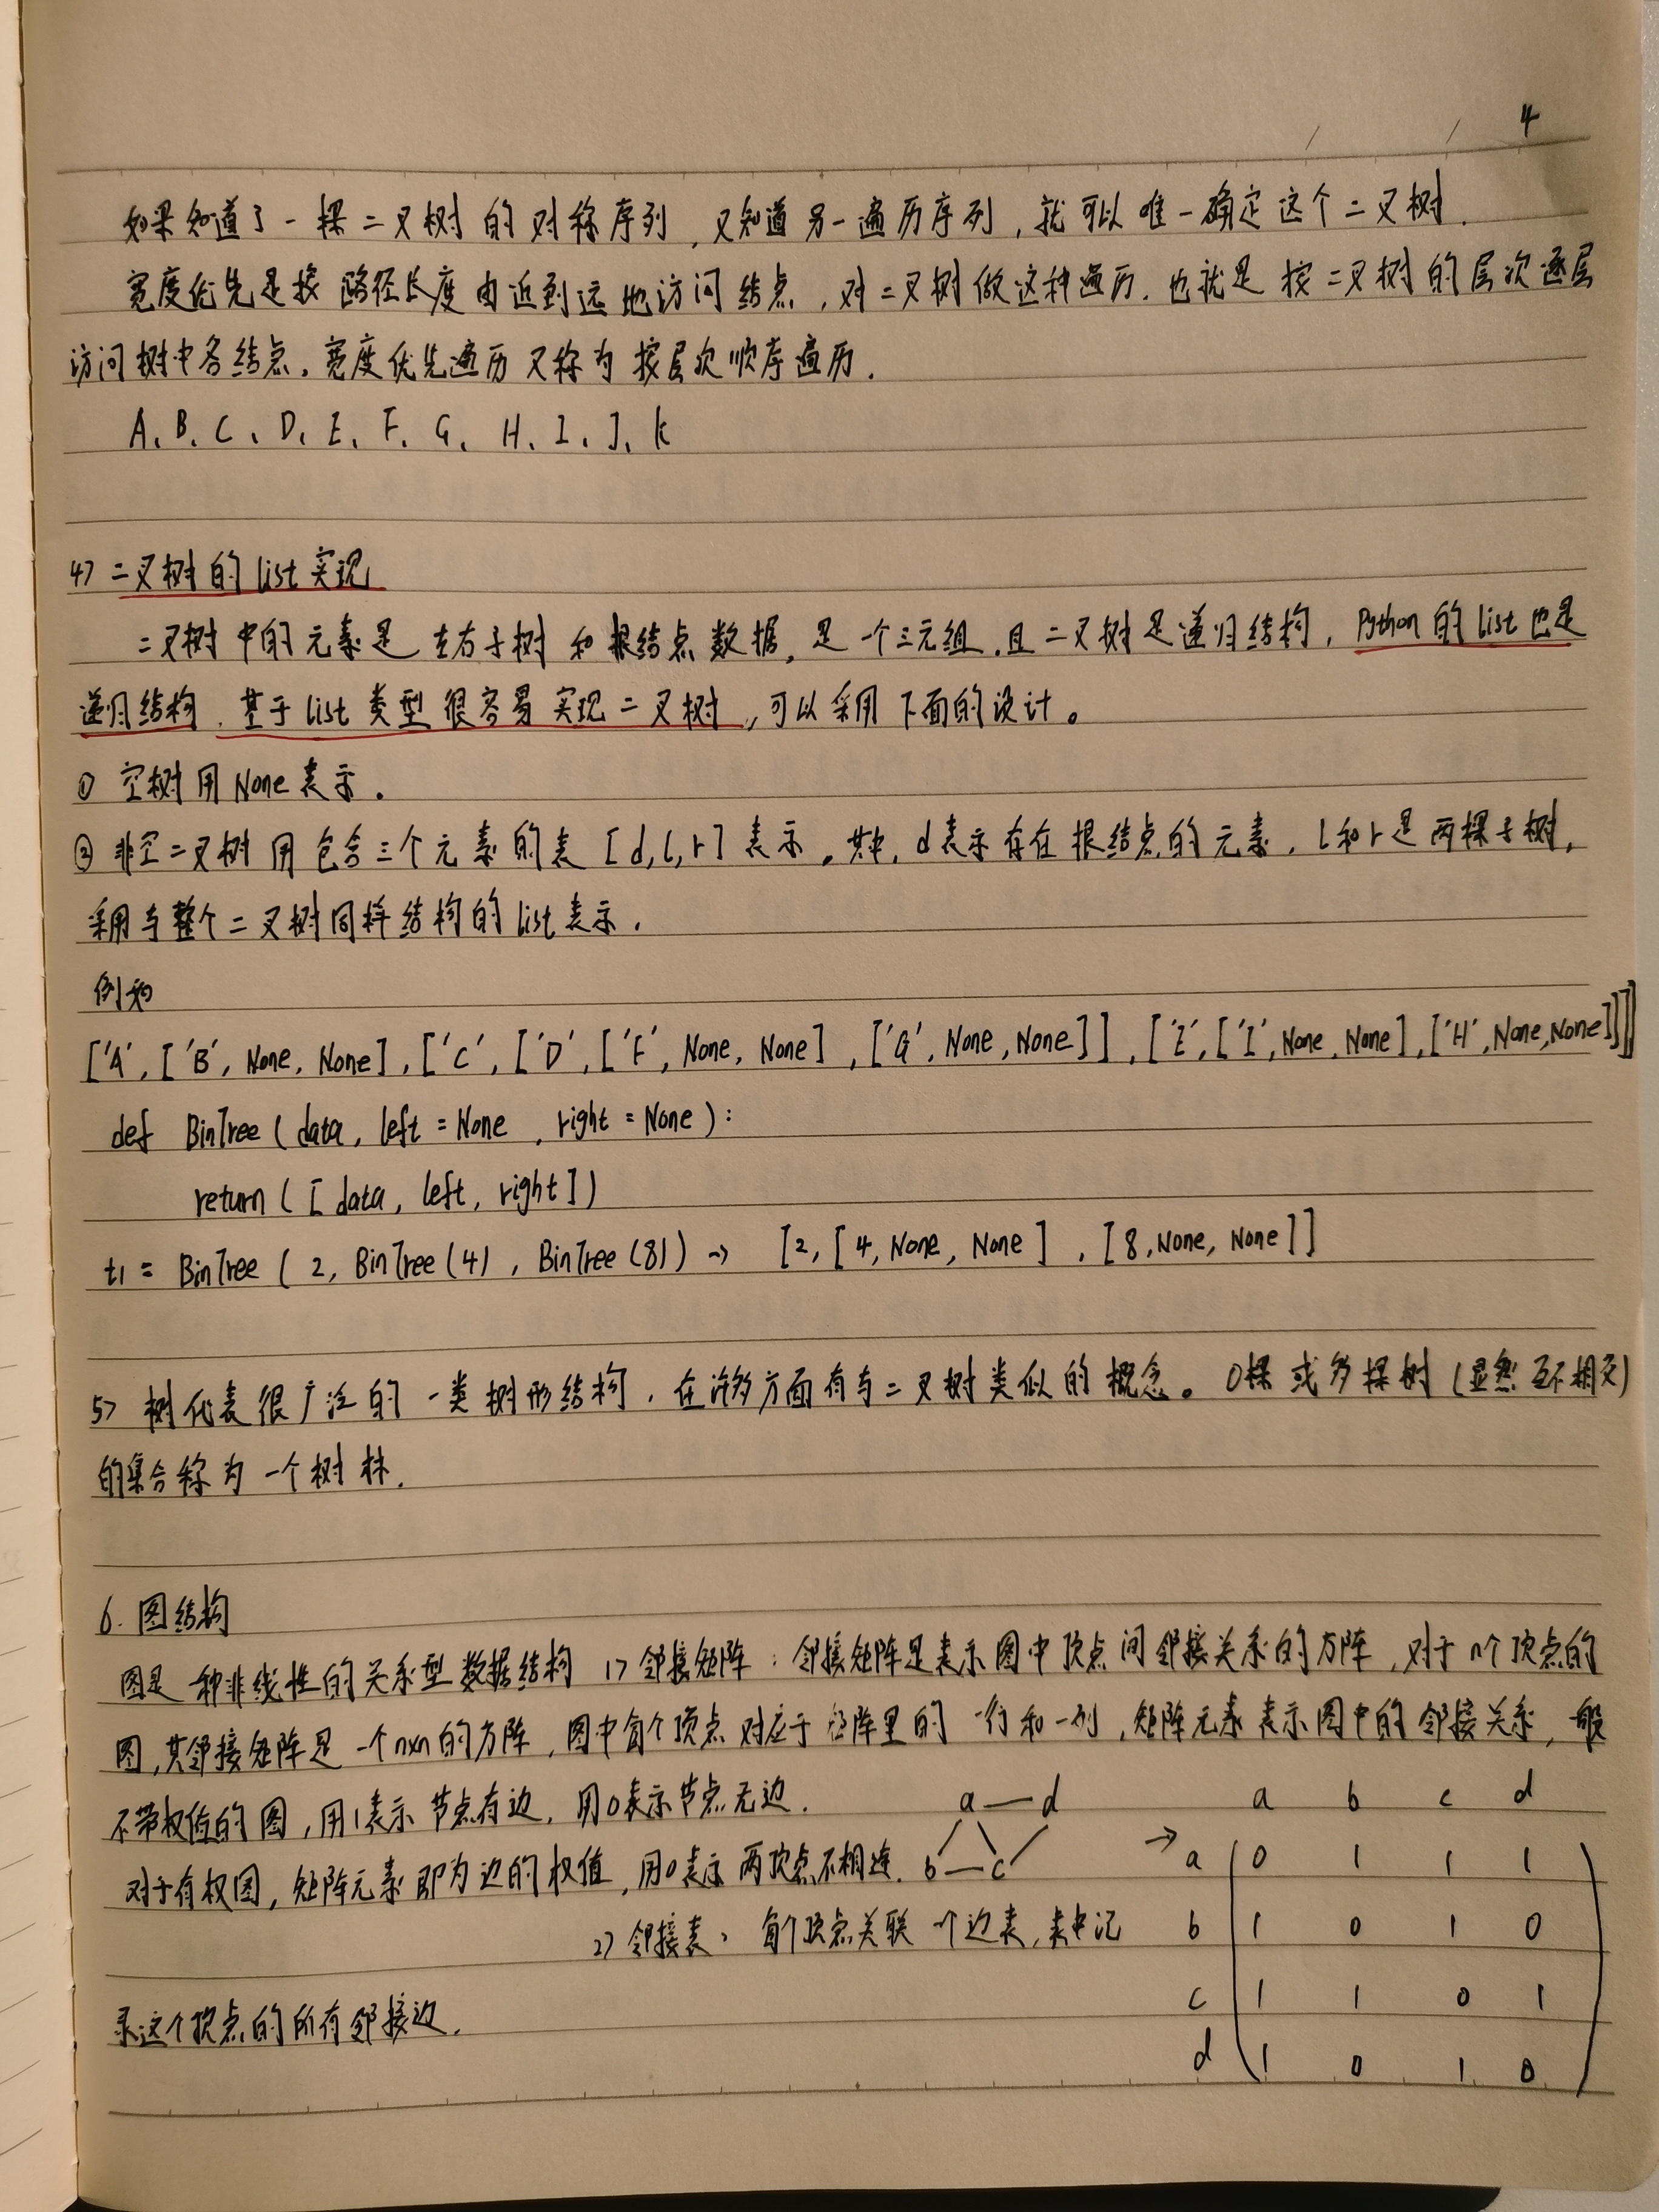 4
如果知道了一棵二叉树的对称序列，又知道另一遍历序列，就可以唯一确定这个二叉树.
宽度优先是按路径长度由近到远地访问结点，对二叉树做这种遍历.也就是按二叉树的层次逐层
访问树中各结点.宽度优先遍历又称为按层次顺序遍历.
A、B、C、D、E、F、G、H、I、J、K
4> 二叉树的list实现
二叉树中的元素是左右子树和根结点数据，是一个三元组.且二叉树是递归结构，Python的list也是
递归结构.基于list类型很容易实现二叉树，可以采用下面的设计。
① 空树用None表示.
② 非空二叉树用包含三个元素的表[d,l,r]表示.其中，d表示存在根结点的元素，l和r是两棵子树，
采用与整个二叉树同样结构的list表示.
例如
['A',['B',None,None],['C',['D',['F',None,None],['G',None,None]],['E',['I',None,None],['H',None,None]]]]
def BinTree(data, left=None, right=None):
return([data, left, right])
t1 = BinTree(2, BinTree(4), BinTree(8)) → [2,[4,None,None],[8,None,None]]
5> 树代表很广泛的一类树形结构，在许多方面有与二叉树类似的概念。0棵或多棵树(显然互不相交)
的集合称为一个树林.
6. 图结构
图是一种非线性的关系型数据结构 1> 邻接矩阵：邻接矩阵是表示图中顶点间邻接关系的方阵，对于n个顶点的
图，其邻接矩阵是一个n×n的方阵，图中每个顶点对应于矩阵里的一行和一列，矩阵元素表示图中的邻接关系，一般
不带权值的图，用1表示节点有边，用0表示节点无边.
对于有权图，矩阵元素即为边的权值，用0表示两顶点不相连.
a — d
b — c
→
a b c d
a 0 1 1 1
b 1 0 1 0
c 1 1 0 1
d 1 0 1 0
2> 邻接表：每个顶点关联一个边表，表中记
录这个顶点的所有邻接边.